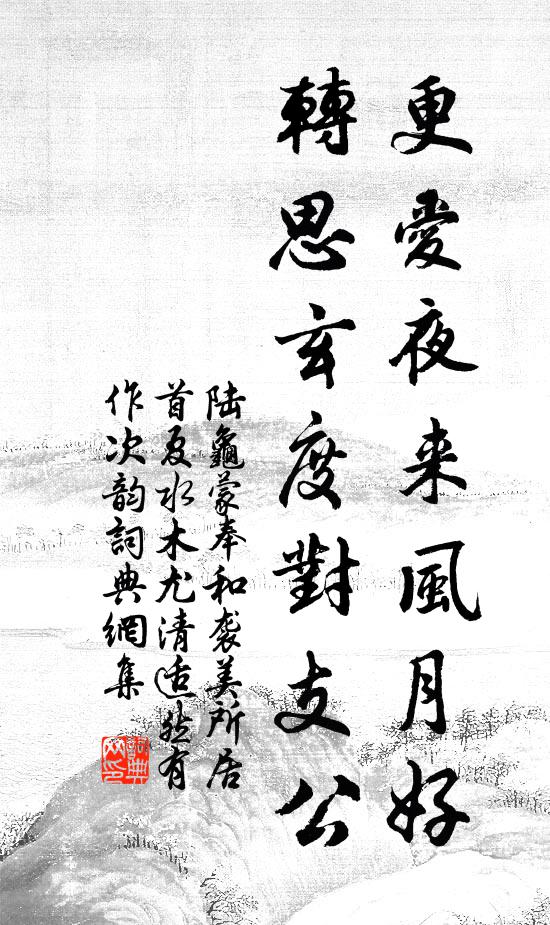 更愛夜来風月好
轉思玄度對支公
陆龜蒙奉和袭美所居
首夏水木尤清适然有
作次韵詞典網集